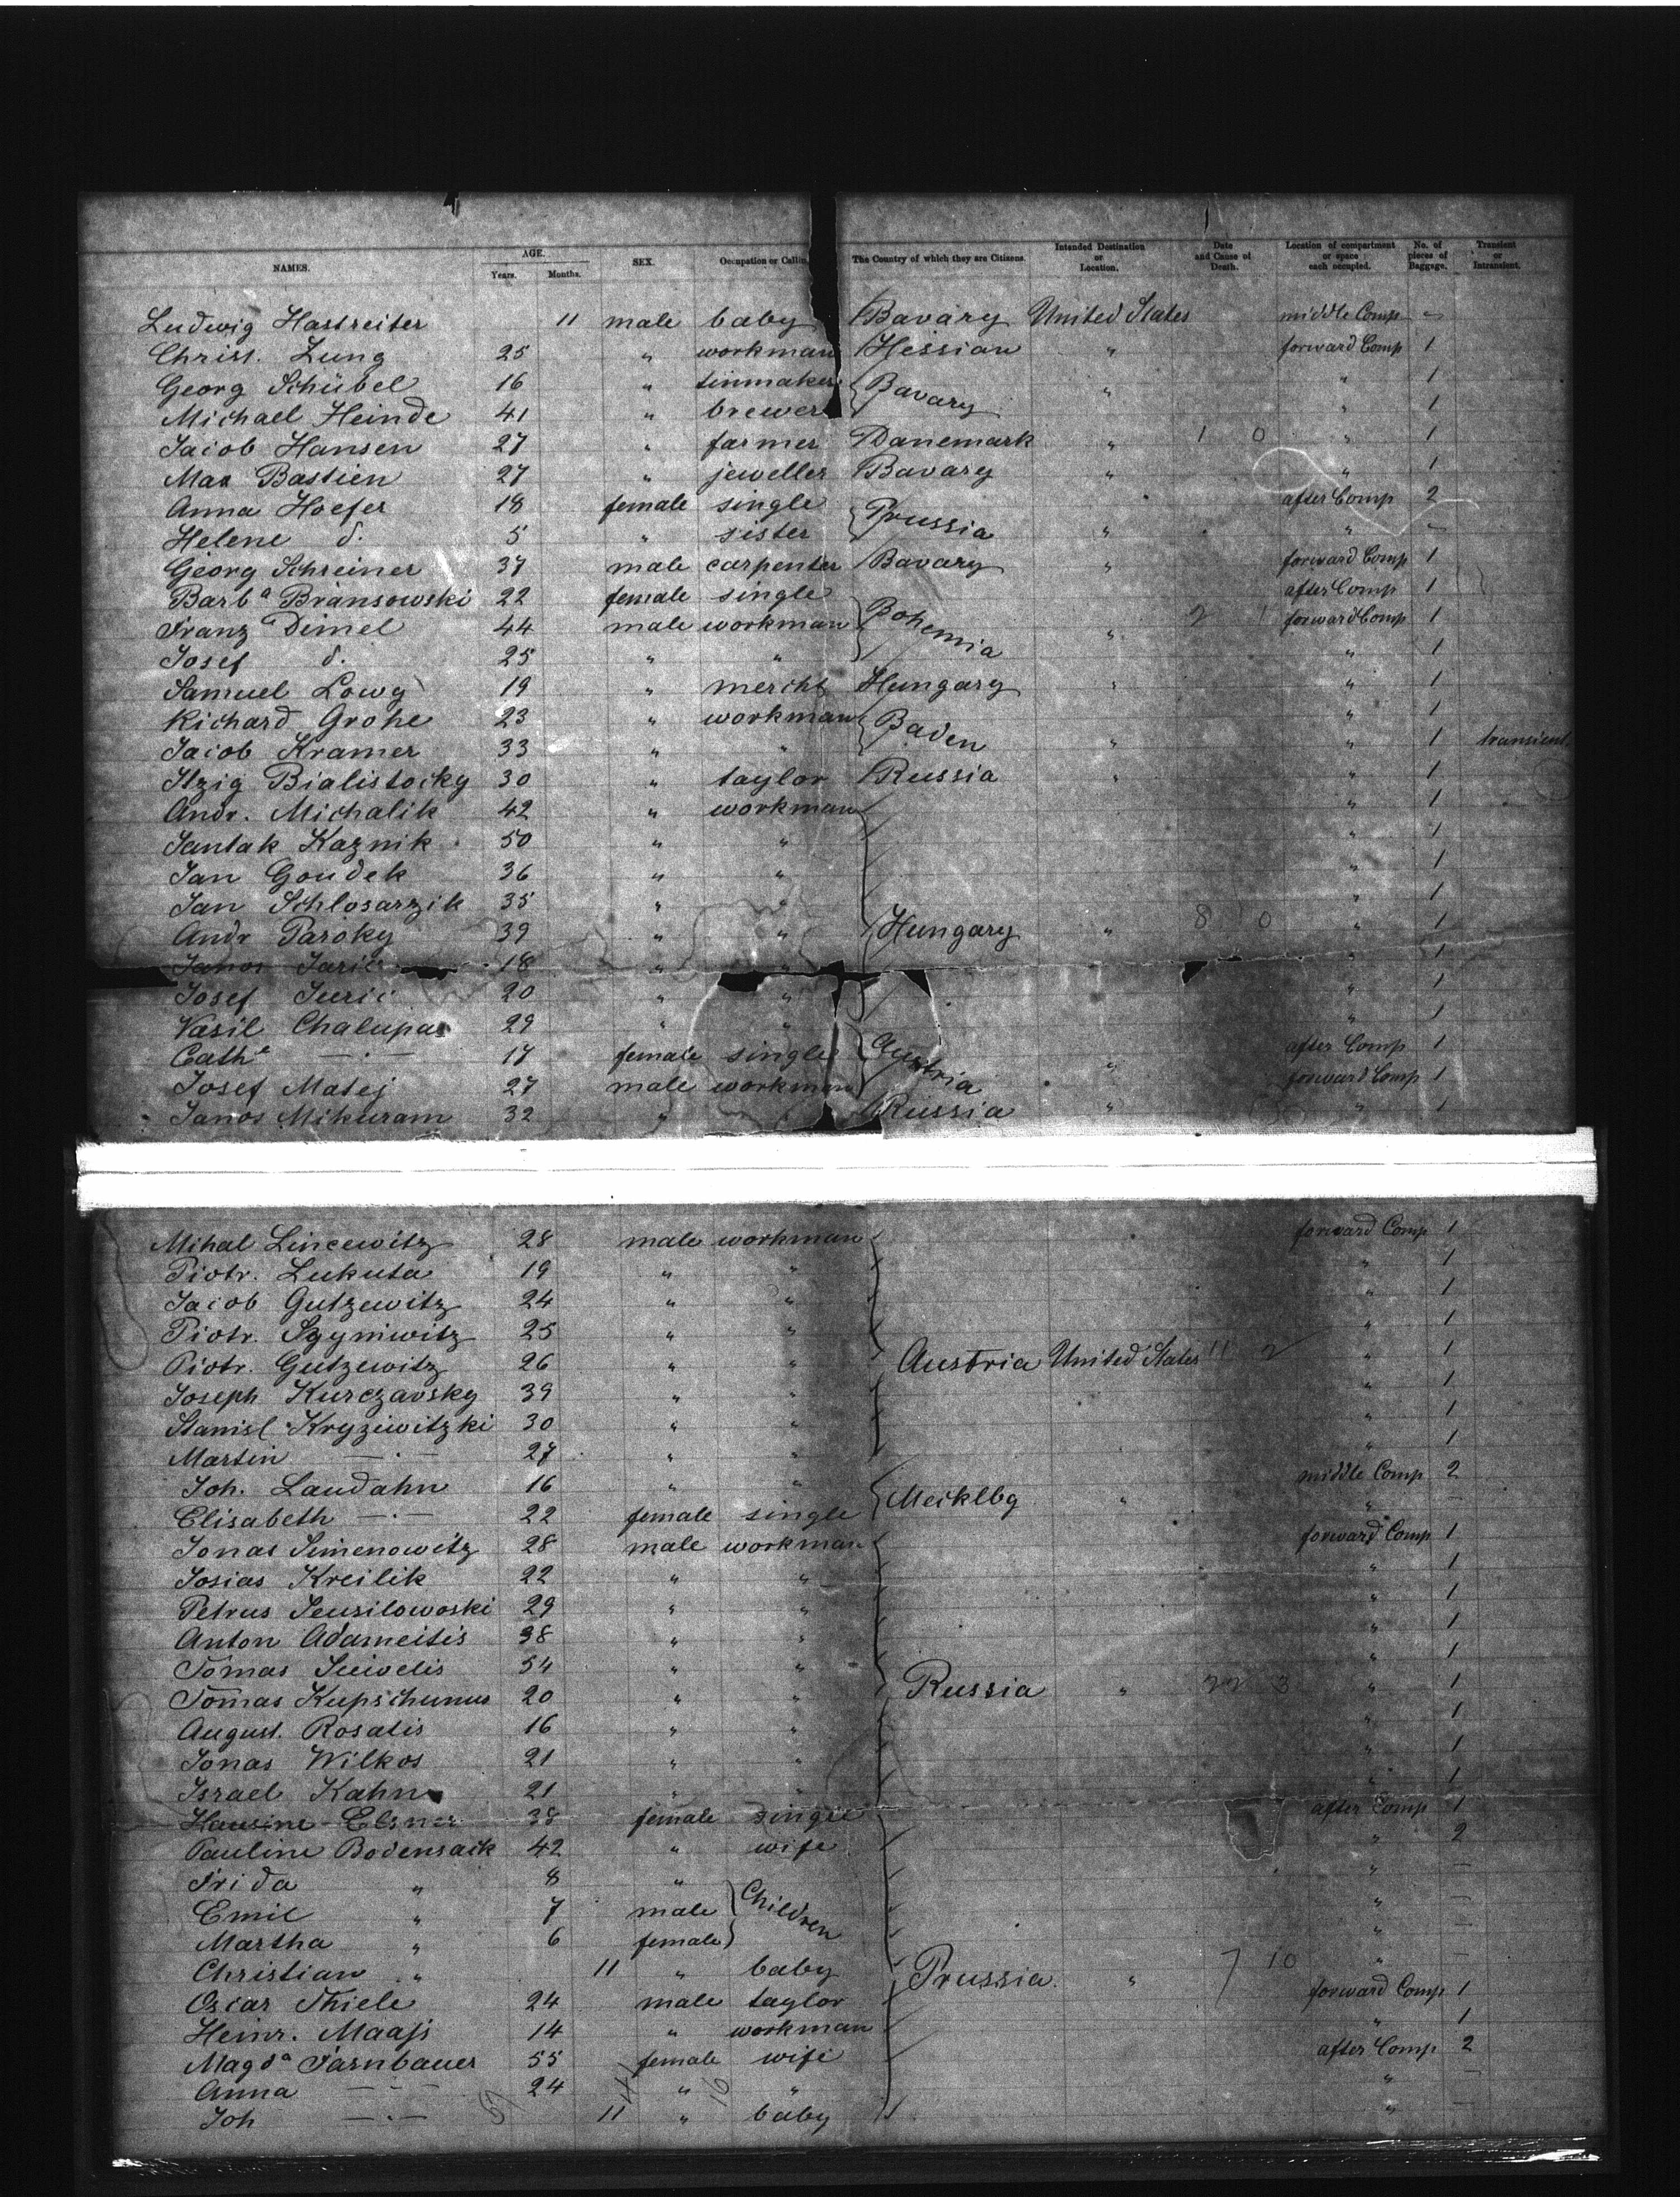 NAMES. AGE. Years. Months. SEX. Occupation or Calling The Country of which they are Citizens. Intended Destination or Location. Date and Cause of Death. Location of compartment or space each occupied. No. of pieces of Baggage. Transient or Intransient.
Ludwig Hastreiter 11 male baby Bavary United States middle Comp -
Christ. Zung 25 " workman Hessian " forward Comp 1
Georg Schübel 16 " tinmaker Bavary " " 1
Michael Heinde 41 " brewer " 1
Jacob Hansen 27 " farmer Danemark " 1 0 " 1
Max Bastien 27 " jeweller Bavary " " 1
Anna Hoefer 18 female single Prussia after Comp 2
Helene d. 5 " sister " " -
Georg Schreiner 37 male carpenter Bavary " forward Comp 1
Barba Bransowski 22 female single Bohemia after Comp 1
Franz Dimel 44 male workman " 2 1 forward Comp 1
Josef d. 25 " " " 1
Samuel Lowy 19 " mercht Hungary " " 1
Richard Grohe 23 " workman Baden " 1
Jacob Kramer 33 " " " " 1 transient
Itzig Bialistocky 30 " taylor Russia " " 1
Andr. Michalik 42 " workman " 1
Jantak Kaznik 50 " " " 1
Jan Goudek 36 " " " 1
Jan Schlosarzik 35 " " " 1
Andr Paroky 39 " " Hungary " 8 0 " 1
Janos 18 " " " 1
Josef Juric 20 " " " 1
Vasil Chalupa 29 " " " 1
Cathe — . — 17 female single Austria " after Comp 1
Josef Matej 27 male workman forward Comp 1
Janos Mikuram 32 " Russia " " 1
Mihal Lincewitz 28 male workman forward Comp 1
Piotr. Lukuta 19 " " " 1
Jacob Gutzewitz 24 " " " 1
Piotr. Sgyniwitz 25 " " " 1
Piotr. Gutzewitz 26 " " Austria United States 11 2 " 1
Joseph Kurczavsky 39 " " " 1
Stanisl Kryziwitzki 30 " " " 1
Martin — . — 27 " " " 1
Joh. Laudahn 16 " " Mecklbg " middle Comp 2
Elisabeth — . — 22 female single " -
Jonas Simenowitz 28 male workman forward Comp 1
Josias Kreilik 22 " " " 1
Petrus 29 " " " 1
Anton Adameitis 38 " " " 1
Tomas 54 " " " 1
Tomas Kupschunus 20 " " Russia " 22 3 " 1
August. Rosatis 16 " " " 1
Jonas Wilkos 21 " " " 1
Israel Kahn 21 " " " 1
Elsner 38 female single after Comp 1
Pauline Bodensack 42 " wife " 2
Frida " 8 " Children " -
Emil " 7 male " -
Martha " 6 female " -
Christian " 11 " baby Prussia " 7 10 " -
Oscar Thiele 24 male taylor forward Comp 1
Heinr. Maaß 14 " workman " 1
Magda Farnbauer 55 female wife after Comp 2
Anna — . — 24 " " " -
Joh — . — 11 " baby " -